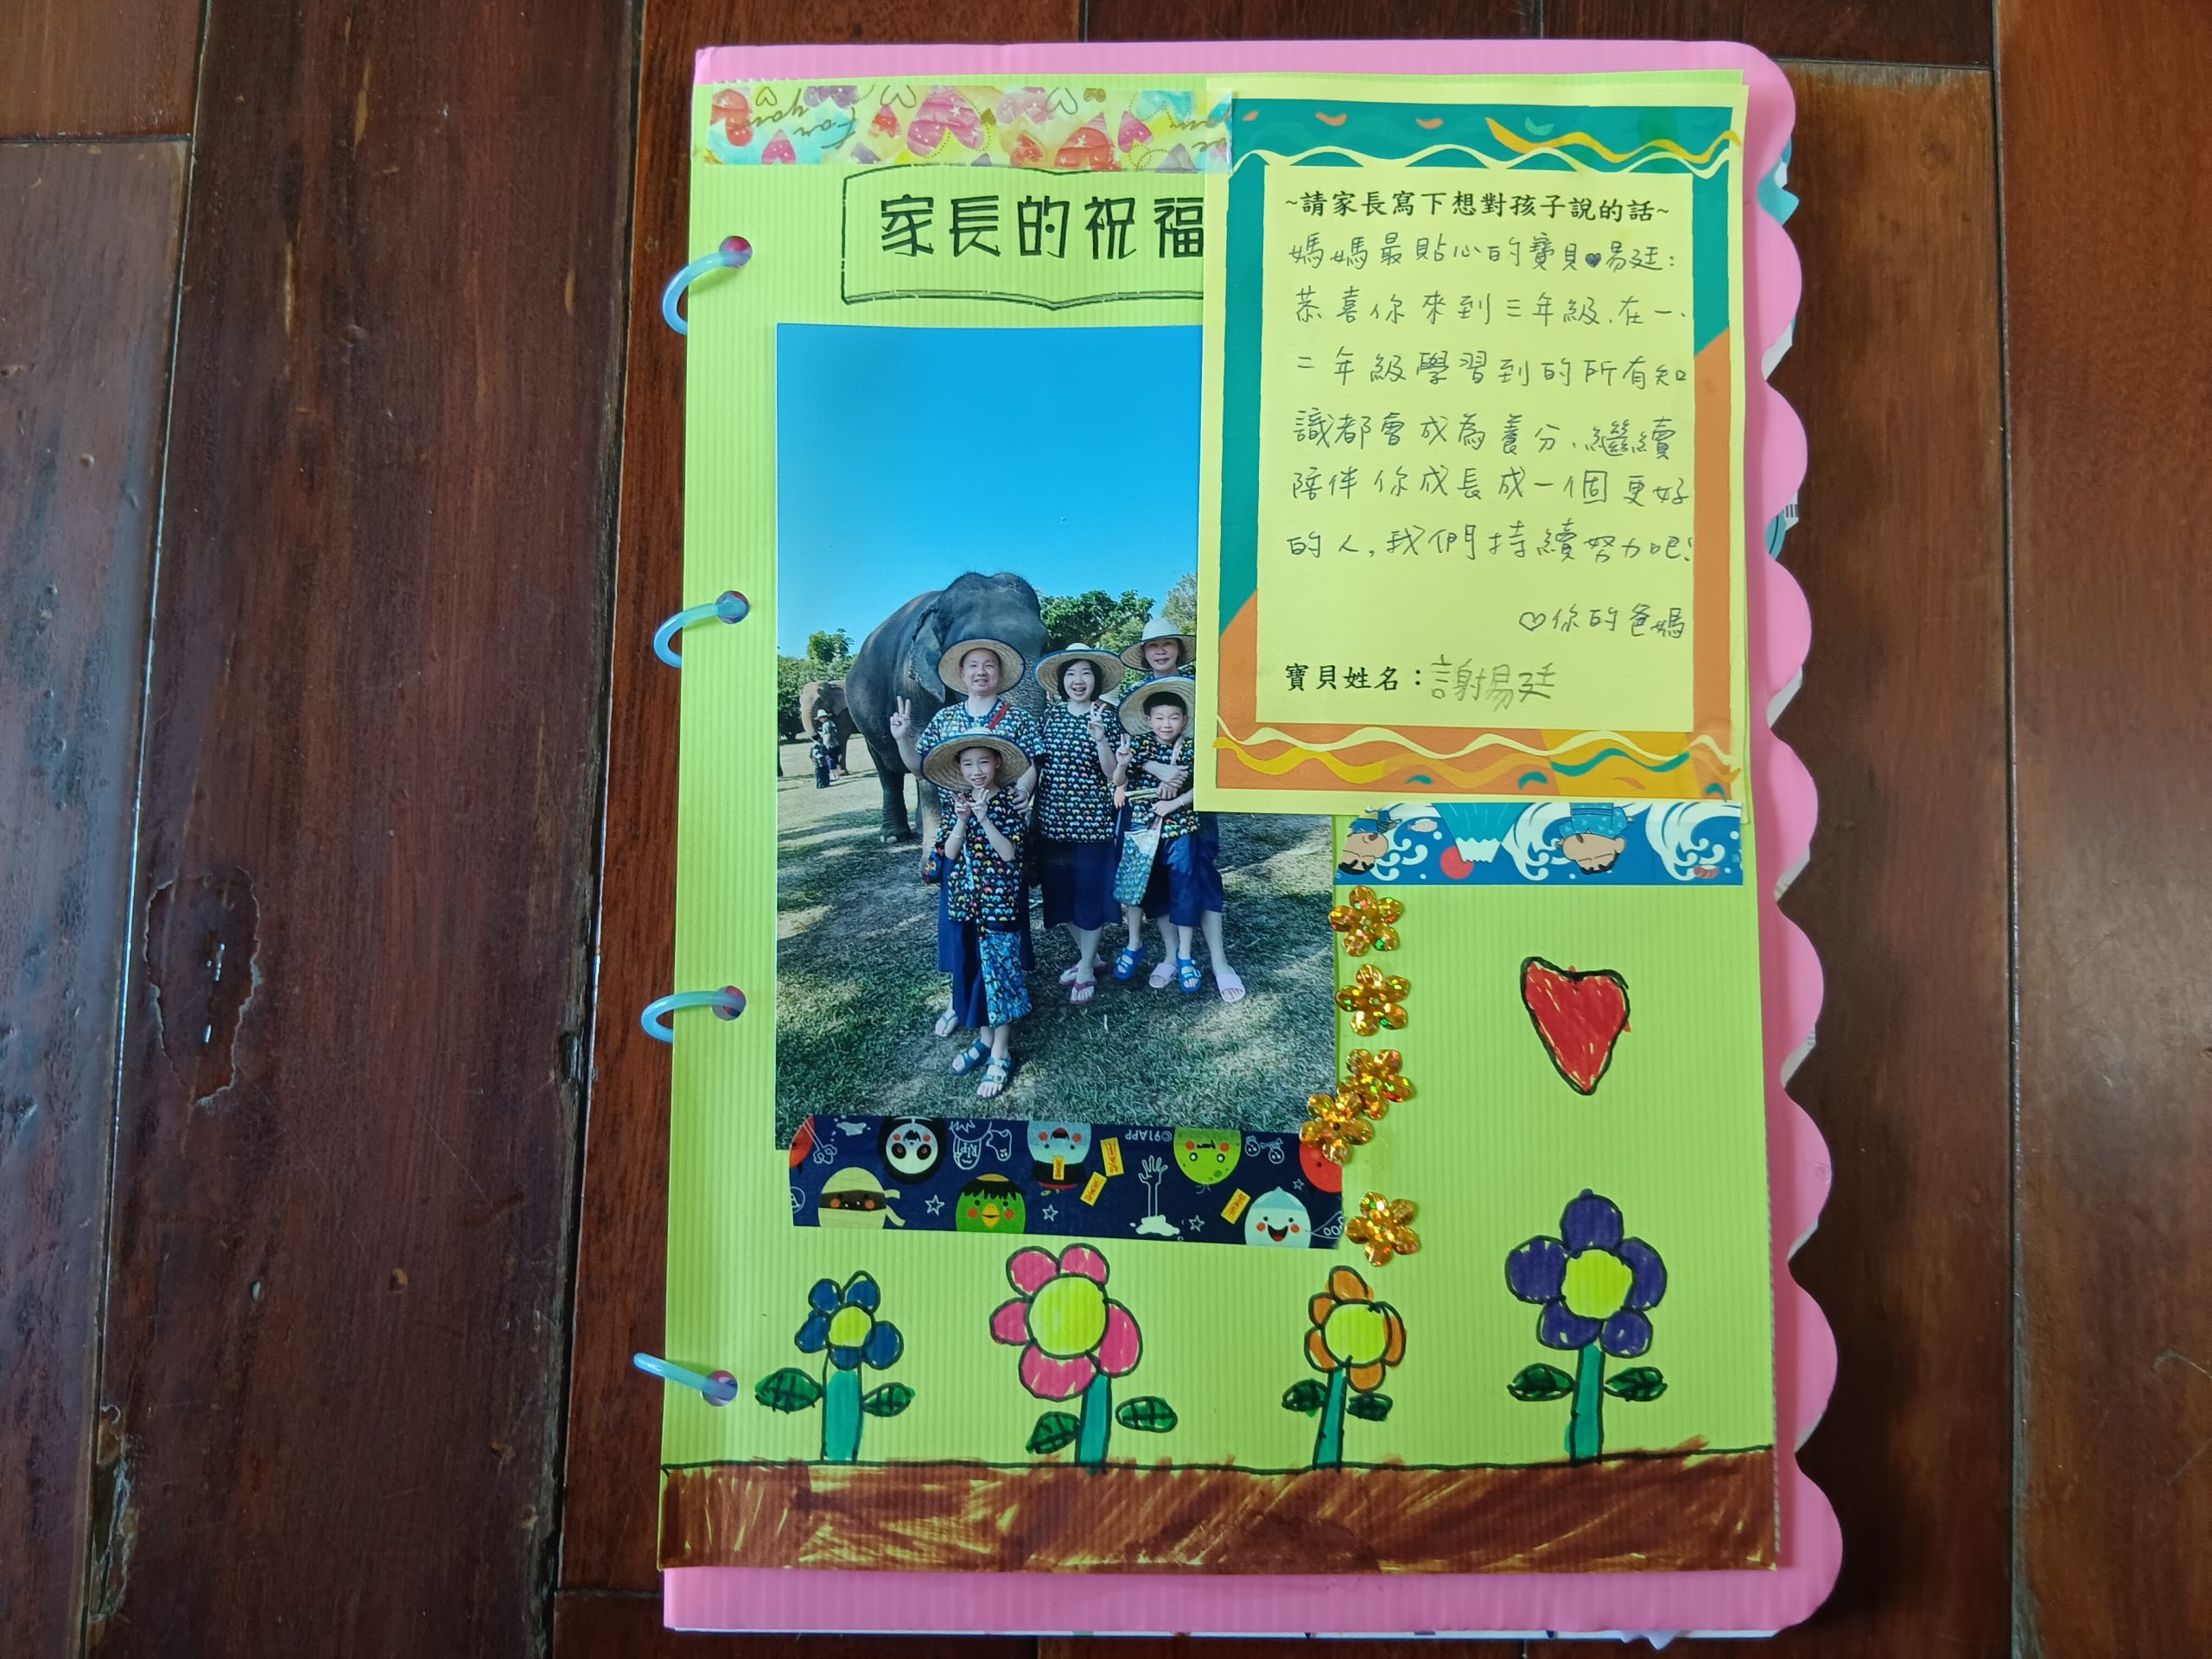 for you
家長的祝福
~請家長寫下想對孩子說的話~
媽媽最貼心的寶貝♥易廷：
恭喜你來到三年級,在一、
二年級學習到的所有知
識都會成為養分、繼續
陪伴你成長成一個更好
的人,我們持續努力吧!
♡你的爸媽
寶貝姓名：謝易廷
©91APP
RIP